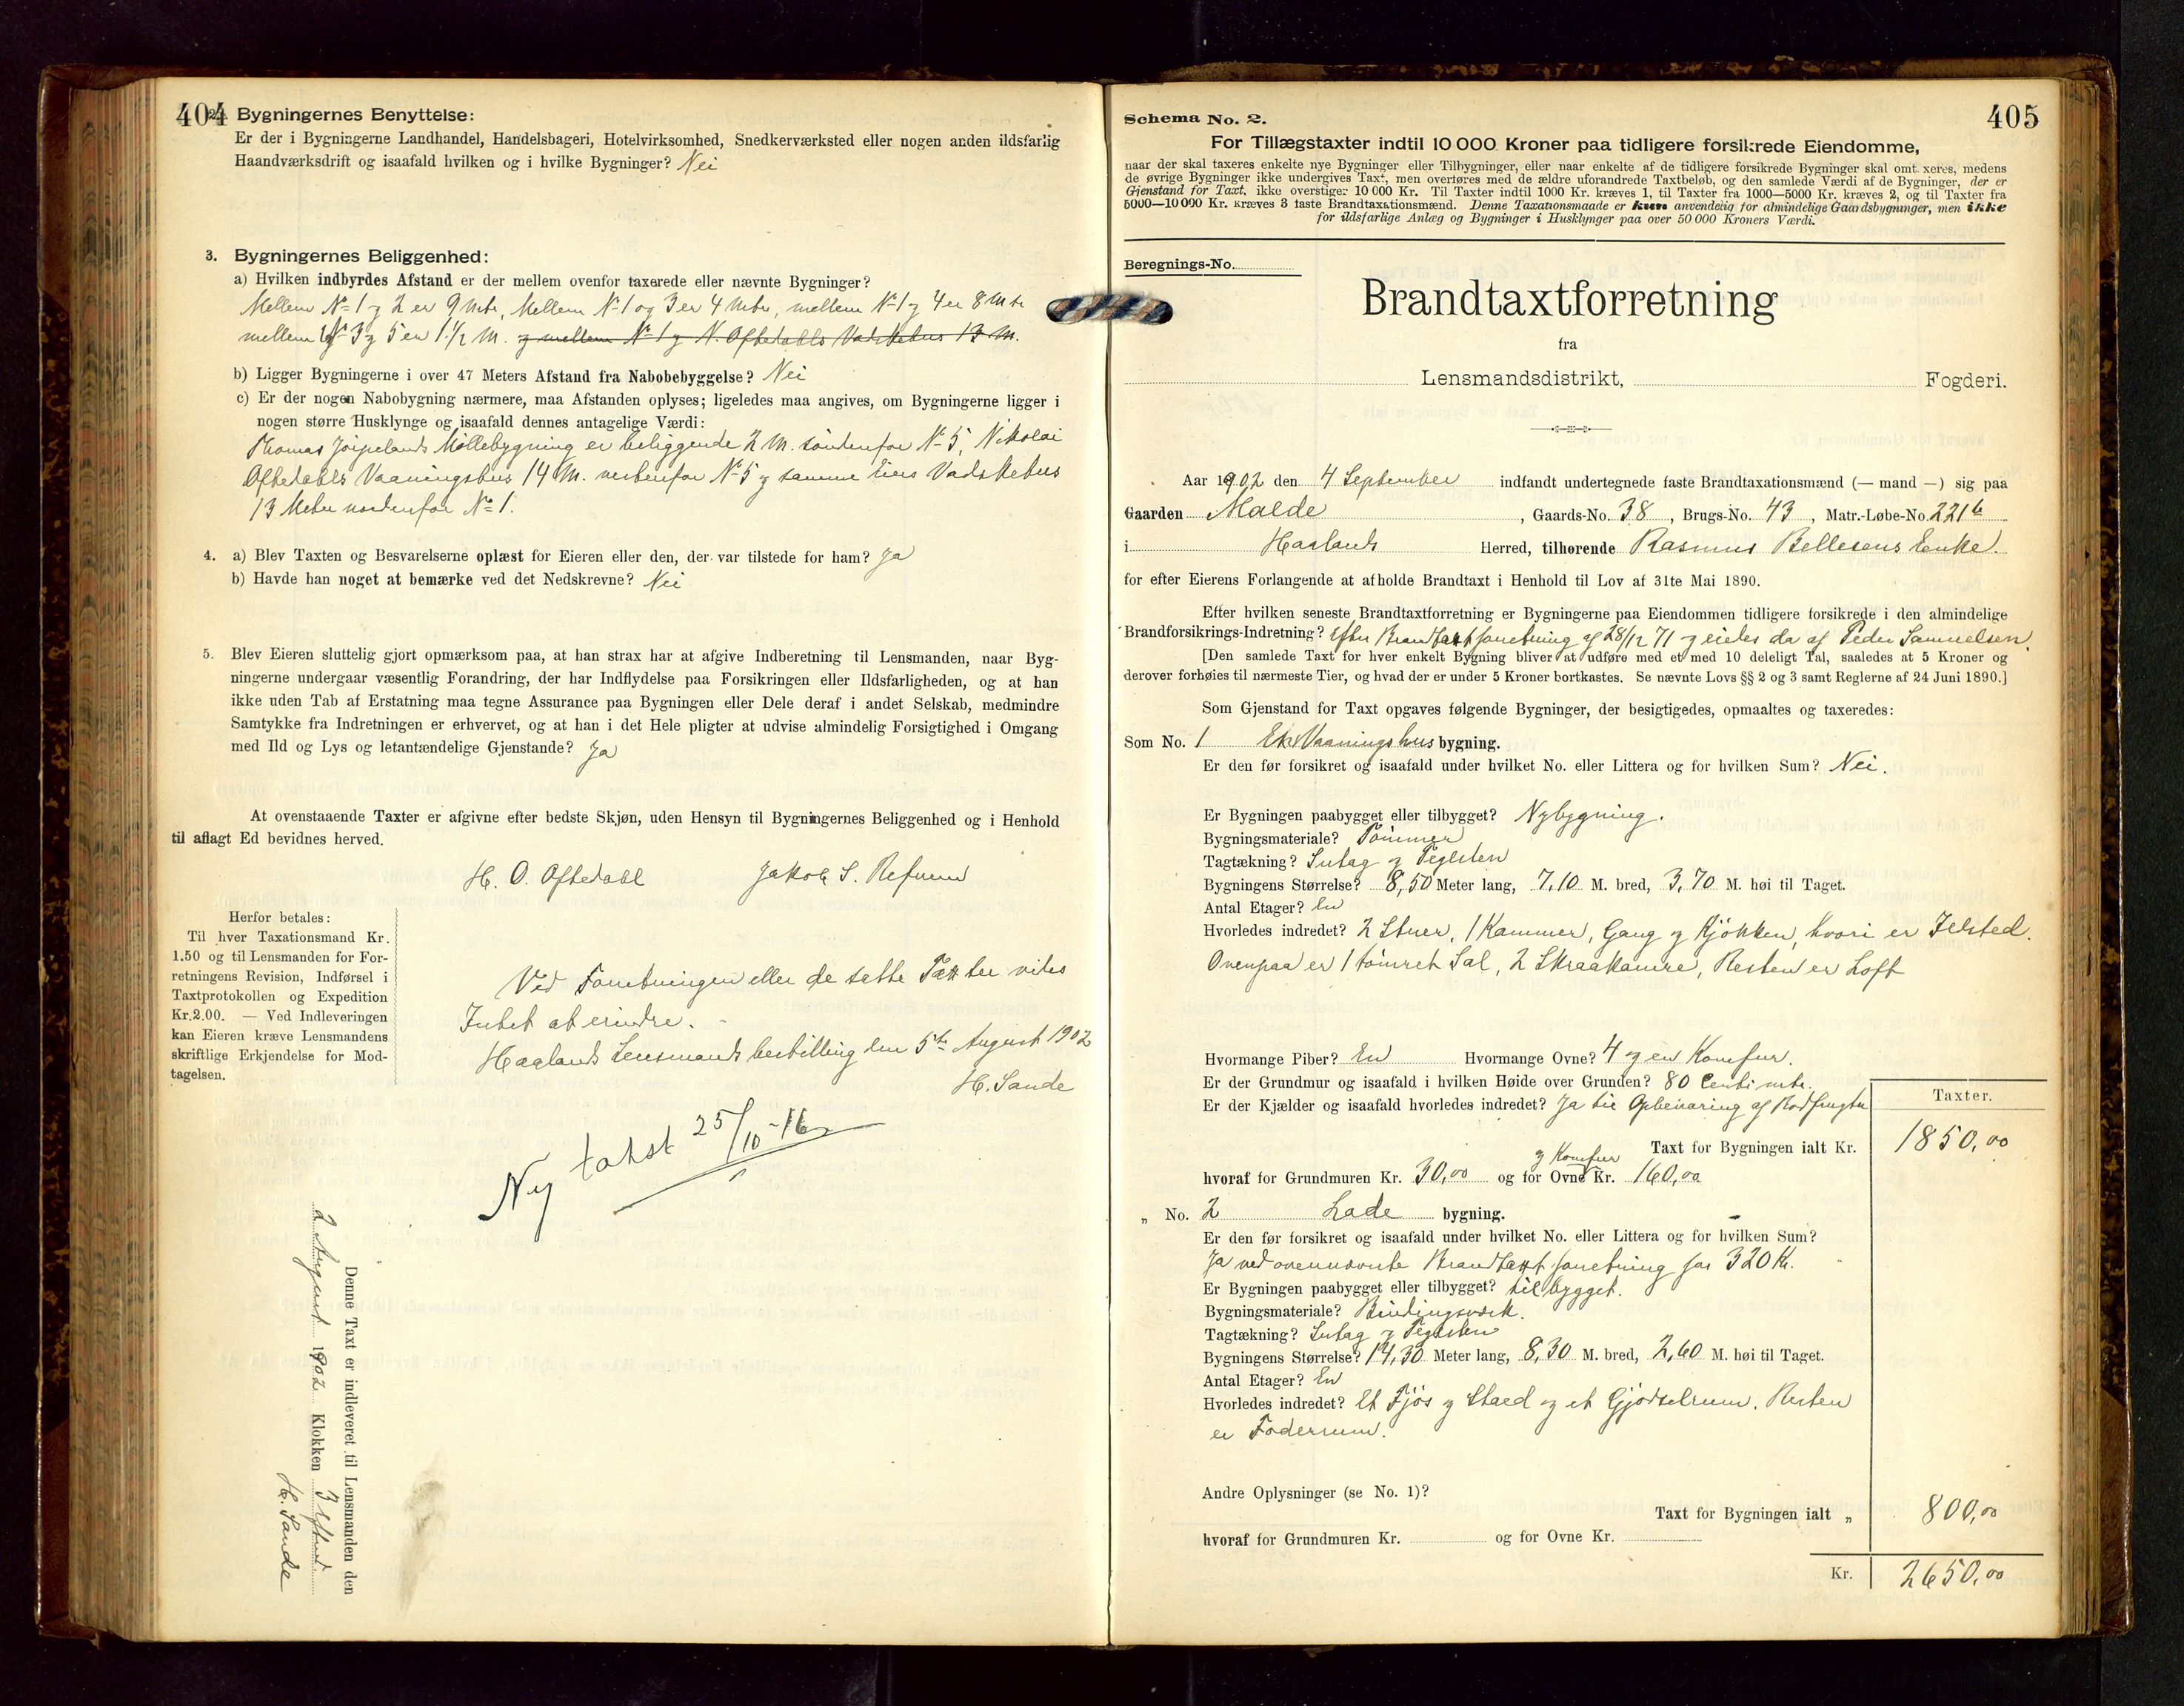 404
2. Bygningernes Benyttelse:
Er der i Bygningerne Landhandel, Handelsbageri, Hotelvirksomhed, Snedkerværksted eller nogen anden ildsfarlig
Haandværksdrift og isaafald hvilken og i hvilke Bygninger? Nei
3. Bygningernes Beliggenhed:
a) Hvilken indbyrdes Afstand er der mellem ovenfor taxerede eller nævnte Bygninger?
Mellem No 1 og 2 er 9 Mtr, Mellem No 1 og 3 er 4 Mtr, mellem No 1 og 4 er 8 Mtr
mellem No 3 og 5 er 1 1/2 M. og mellem No 1 og N. Oftedahls Vadskehus 13 M.
b) Ligger Bygningerne i over 47 Meters Afstand fra Nabobebyggelse? Nei
c) Er der nogen Nabobygning nærmere, maa Afstanden oplyses; ligeledes maa angives, om Bygningerne ligger i
nogen større Husklynge og isaafald dennes antagelige Værdi:
Thomas Jøipelands Møllebygning er beliggende 2 M. søndenfor No 5, Nikolai
Oftedahls Vaaningshus 14 M. vestenfor No 5 og samme Eiers Vadskehus
13 Meter nordenfor No 1.
4. a) Blev Taxten og Besvarelserne oplæst for Eieren eller den, der var tilstede for ham? Ja
b) Havde han noget at bemærke ved det Nedskrevne? Nei
5. Blev Eieren sluttelig gjort opmærksom paa, at han strax har at afgive Indberetning til Lensmanden, naar Byg-
ningerne undergaar væsentlig Forandring, der har Indflydelse paa Forsikringen eller Ildsfarligheden, og at han
ikke uden Tab af Erstatning maa tegne Assurance paa Bygningen eller Dele deraf i andet Selskab, medmindre
Samtykke fra Indretningen er erhvervet, og at han i det Hele pligter at udvise almindelig Forsigtighed i Omgang
med Ild og Lys og letantændelige Gjenstande? Ja
At ovenstaaende Taxter er afgivne efter bedste Skjøn, uden Hensyn til Bygningernes Beliggenhed og i Henhold
til aflagt Ed bevidnes herved.
H. O. Oftedahl Jakob S. Refnem
Herfor betales:
Til hver Taxationsmand Kr.
1.50 og til Lensmanden for For-
retningens Revision, Indførsel i
Taxtprotokollen og Expedition
Kr.2.00. — Ved Indleveringen
kan Eieren kræve Lensmandens
skriftlige Erkjendelse for Mod-
tagelsen.
Ved Forretningen eller de satte Taxter vides
Intet at erindre.
Haalands Lensmandsbestilling den 5te August 1902
H. Sande
Ny takst 25/10-16
Denne Taxt er indleveret til Lensmanden den
2 August 1902 Klokken 3 Efterm.
H. Sande
405
Schema No. 2.
For Tillægstaxter indtil 10 000 Kroner paa tidligere forsikrede Eiendomme,
naar der skal taxeres enkelte nye Bygninger eller Tilbygninger, eller naar enkelte af de tidligere forsikrede Bygninger skal omtaxeres, medens
de øvrige Bygninger ikke undergives Taxt, men overføres med de ældre uforandrede Taxtbeløb, og den samlede Værdi af de Bygninger, der er
Gjenstand for Taxt, ikke overstiger 10 000 Kr. Til Taxter indtil 1000 Kr. kræves 1, til Taxter fra 1000—5000 Kr. kræves 2, og til Taxter fra
5000—10 000 Kr. kræves 3 faste Brandtaxationsmænd. Denne Taxationsmaade er kun anvendelig for almindelige Gaardsbygninger, men ikke
for ildsfarlige Anlæg og Bygninger i Husklynger paa over 50 000 Kroners Værdi.
Beregnings-No.
Brandtaxtforretning
fra
Lensmandsdistrikt, Fogderi.
Aar 1902 den 4 September indfandt undertegnede faste Brandtaxationsmænd (— mand —) sig paa
Gaarden Malde, Gaards-No. 38, Brugs-No. 43, Matr.-Løbe-No. 221b
i Haalands Herred, tilhørende Rasmus Bellesens Enke.
for efter Eierens Forlangende at afholde Brandtaxt i Henhold til Lov af 31te Mai 1890.
Efter hvilken seneste Brandtaxtforretning er Bygningerne paa Eiendommen tidligere forsikrede i den almindelige
Brandforsikrings-Indretning? Efter Brandtaxtforretning af 28/12 71 og eiedes da af Peder Samuelsen.
[Den samlede Taxt for hver enkelt Bygning bliver at udføre med et med 10 deleligt Tal, saaledes at 5 Kroner og
derover forhøies til nærmeste Tier, og hvad der er under 5 Kroner bortkastes. Se nævnte Lovs §§ 2 og 3 samt Reglerne af 24 Juni 1890.]
Som Gjenstand for Taxt opgaves følgende Bygninger, der besigtigedes, opmaaltes og taxeredes:
Som No. 1 Et Vaaningshus bygning.
Er den før forsikret og isaafald under hvilket No. eller Littera og for hvilken Sum? Nei.
Er Bygningen paabygget eller tilbygget? Nybygning.
Bygningsmateriale? Tømmer
Tagtækning? Sutag og Teglsten
Bygningens Størrelse? 8,50 Meter lang, 7,10 M. bred, 3,70 M. høi til Taget.
Antal Etager? En
Hvorledes indredet? 2 Stuer, 1 Kammer, Gang og Kjøkken, hvori er Ildsted.
Ovenpaa er 1 tømret Sal, 2 Skraakamre, Resten er Loft
Hvormange Piber? En Hvormange Ovne? 4 og en Komfur.
Er der Grundmur og isaafald i hvilken Høide over Grunden? 80 Centimtr.
Er der Kjælder og isaafald hvorledes indredet? Ja til Opbevaring af Rodfrugter
Taxter.
Taxt for Bygningen ialt Kr. 1850,00
og Komfur
hvoraf for Grundmuren Kr. 30,00 og for Ovne Kr. 160,00
„ No. 2 Lade bygning.
Er den før forsikret og isaafald under hvilket No. eller Littera og for hvilken Sum?
Ja ved ovennævnte Brandtaxtforretning for 320 Kr.
Er Bygningen paabygget eller tilbygget? tilbygget.
Bygningsmateriale? Bindingsværk.
Tagtækning? Sutag og Teglsten
Bygningens Størrelse? 14,30 Meter lang, 8,30 M. bred, 2,60 M. høi til Taget.
Antal Etager? En
Hvorledes indredet? Et Fjøs og Stald og et Gjødselrum. Resten
er Foderrum.
Andre Oplysninger (se No. 1)?
Taxt for Bygningen ialt „ 800,00
hvoraf for Grundmuren Kr. og for Ovne Kr.
Kr. 2650,00